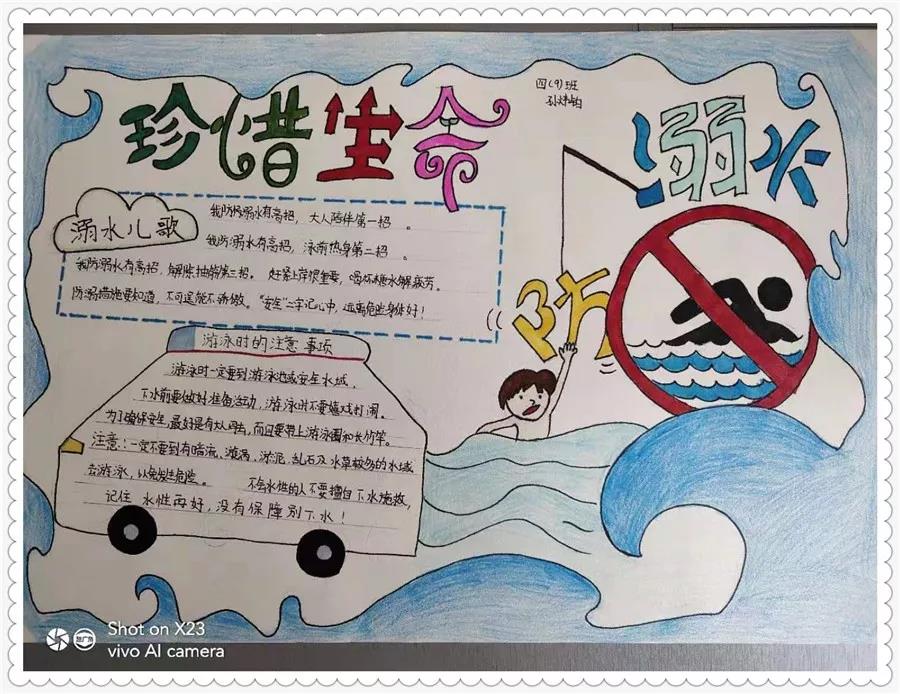 四(9)班
珍惜生命
防
溺水
溺水儿歌
我防溺水有高招，大人陪伴第一招。
我防溺水有高招，泳前热身第二招。
我防溺水有高招，解除抽筋第三招。赶紧上岸很重要，喝杯糖水解疲劳。
防溺措施要知道，不可逞能不骄傲。"安全"二字记心中，远离危险身体好！
游泳时的注意事项
游泳时一定要到游泳池或安全水域，
下水前要做好准备活动，游泳时不要嬉戏打闹。
为了确保安全，最好是有大人同去，而且要带上游泳圈和长竹竿。
注意：一定不要到有暗流、漩涡、淤泥、乱石及水草较多的水域
去游泳，以免发生危险。 不会水性的人不要擅自下水施救，
记住 水性再好，没有保障别下水！
Shot on X23
vivo AI camera